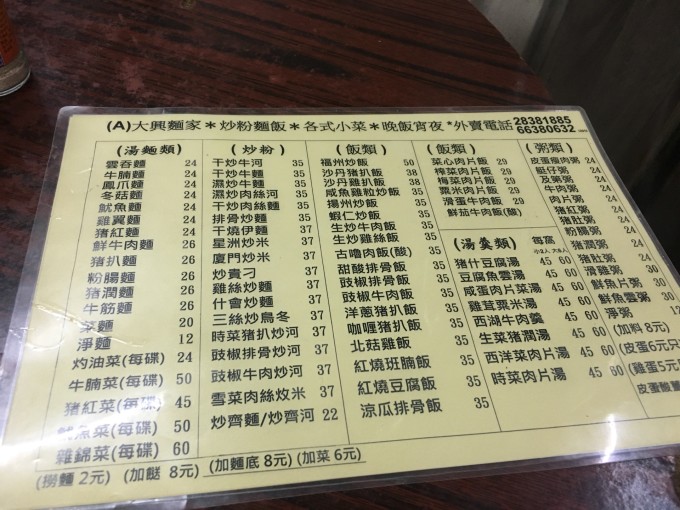 (A)大興麵家＊炒粉麵飯＊各式小菜＊晚飯宵夜*外賣電話 28381885
66380632
(湯麵類)
雲吞麵 24
牛腩麵 24
鳳爪麵 24
冬菇麵 24
魷魚麵 24
雞翼麵 24
豬紅麵 24
鮮牛肉麵 26
豬扒麵 26
粉腸麵 26
豬潤麵 26
牛筋麵 26
菜麵 20
淨麵 12
灼油菜(每碟) 24
牛腩菜(每碟) 50
豬紅菜(每碟) 45
魷魚菜(每碟) 50
雜錦菜(每碟) 60
(炒粉)
干炒牛河 35
干炒牛麵 35
濕炒牛河 35
濕炒肉絲河 35
干炒肉絲麵 35
排骨炒麵 35
干燒伊麵 35
星洲炒米 37
廈門炒米 37
炒貴刁 37
雞絲炒麵 37
什會炒麵 37
三絲炒烏冬 37
時菜豬扒炒河 37
豉椒排骨炒河 37
豉椒牛肉炒河 37
雪菜肉絲炆米 37
炒齋麵/炒齋河 22
(飯類)
福州炒飯 50
沙丹豬扒飯 38
沙丹雞扒飯 38
咸魚雞粒炒飯 35
揚州炒飯 35
蝦仁炒飯 35
生炒牛肉飯 35
生炒雞絲飯 35
古嚕肉飯(酸) 35
甜酸排骨飯 35
豉椒排骨飯 35
豉椒牛肉飯 35
洋蔥豬扒飯 35
咖喱豬扒飯 35
北菇雞飯 35
紅燒班腩飯 35
紅燒豆腐飯 35
涼瓜排骨飯 35
(飯類)
菜心肉片飯 29
榨菜肉片飯 29
梅菜肉片飯 29
粟米肉片飯 29
滑蛋牛肉飯 29
鮮茄牛肉飯(酸)
(湯羹類) 每窩
豬什豆腐湯 45 60
豆腐魚雲湯 45 60
咸蛋肉片菜湯 45 60
雞茸粟米湯 45 60
西湖牛肉羹 45 60
生菜豬潤湯 45 60
西洋菜肉片湯 45 60
時菜肉片湯 45 60
(粥類)
皮蛋瘦肉粥 24
艇仔粥 24
及第粥 24
牛肉粥 24
肉片粥 24
豬紅粥 24
豬肚粥 24
粉腸粥 24
豬潤粥 24
滑雞粥 30
鮮魚片粥 30
鮮魚雲粥 30
淨粥 12
(加料 8元)
(皮蛋 6元
(雞蛋 5元
皮蛋酸薑
(撈麵 2元) (加餸 8元) (加麵底 8元) (加菜 6元)